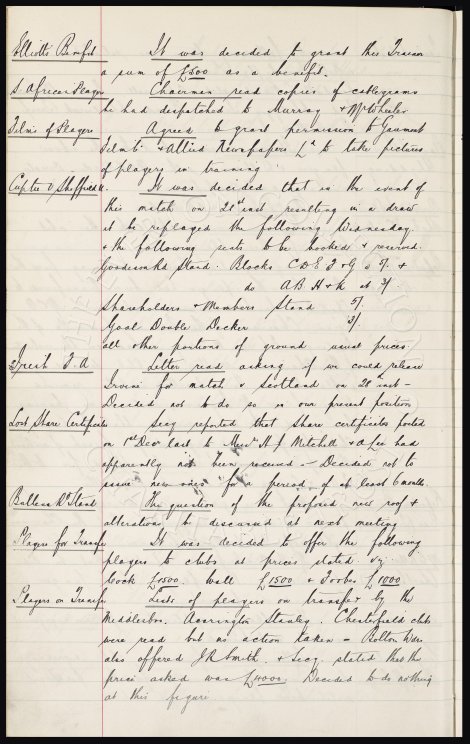 Elliott's Benefit It was decided to grant this Trainer
a sum of £500 as a benefit.
S. African Players Chairman read copies of cablegrams
he had despatched to Murray & Mr Wheeler
Films of Players Agreed to grant permission to Gaumont
Film Co & Allied Newspapers Ld to take pictures
of players in training
Cup tie v Sheffield U. It was decided that in the event of
this match on 21st inst resulting in a draw
it be replayed the following Wednesday
& the following seats to be booked & reserved.
Goodison Rd Stand. Blocks C D E F & G @ 5/. &
do A B H & K at 3/.
Shareholders & Members Stand 5/.
Goal Double Decker 3/.
all other portions of ground usual prices.
Irish F. A Letter read asking if we could release
Irvine for match v Scotland on 28th inst -
Decided not to do so in our present position
Lost Share Certificates Secy reported that share certificates posted
on 1st Decr last to Messrs H J Mitchell & A Lee had
apparently not been received - Decided not to
issue new ones for a period of at least 6 months.
Bullens Rd Stand The question of the proposed new roof &
alterations be discussed at next meeting
Players for Transfer It was decided to offer the following
players to clubs at prices stated viz
Cock £1500. Wall £1500 & Forbes £1000
Players on Transfer Lists of players on transfer by the
Middlesbro. Accrington Stanley. Chesterfield clubs
were read but no action taken - Bolton Wdrs
also offered J R Smith. & Secy. stated that the
price asked was £4000. Decided to do nothing
at this figure